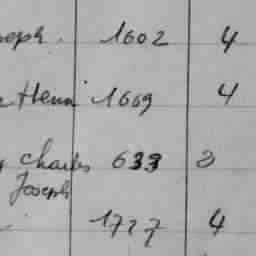 oseph. 1602 4
Henri 1669 4
y Charles 633 3
Joseph
1727 4